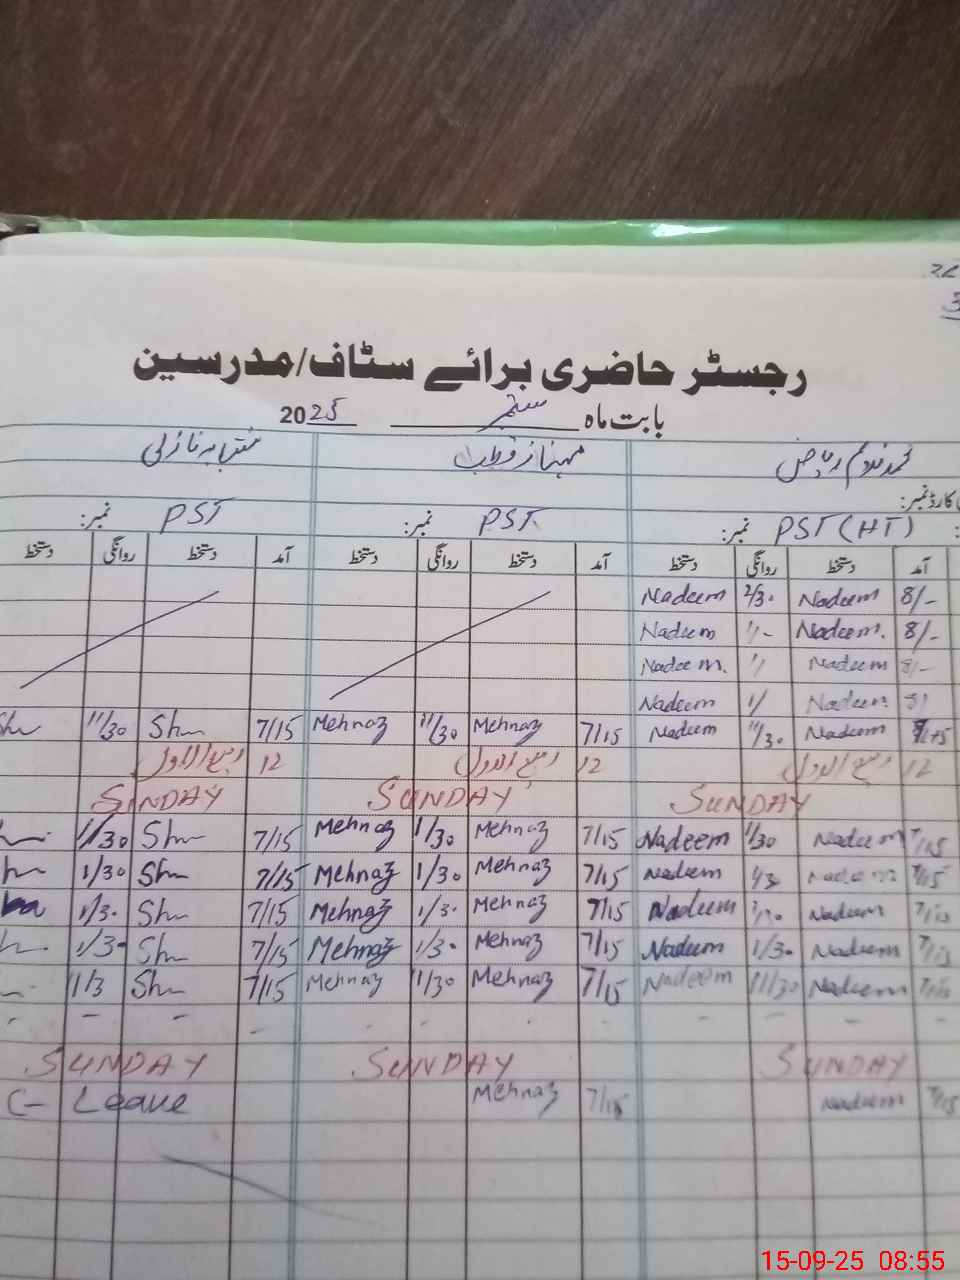 رجسٹر حاضری برائے سٹاف/مدرسین
بابت ماہ ستمبر 2025
مہناز قطب
کارڈ نمبر:
PST (HT) نمبر: PST نمبر: PST نمبر:
آمد دستخط روانگی دستخط آمد دستخط روانگی دستخط آمد دستخط روانگی دستخط
8/- Nadeem 2/30 Nadeem
8/- Nadeem. 1/- Nadeem
8/- Nadeem 1/ Nadeem.
8/ Nadeem 1/ Nadeem
Nadeem 11/30 Nadeem 7/15 Mehnaz 11/30 Mehnaz 7/15 Sh 11/30 Sh
12 ربیع الاول 12 ربیع الاول 12 ربیع الاول
SUNDAY SUNDAY SUNDAY
7/15 Nadeem 1/30 Nadeem 7/15 Mehnaz 1/30 Mehnaz 7/15 Sh 1/30
7/15 Nadeem 1/30 Nadeem 7/15 Mehnaz 1/30 Mehnaz 7/15 Sh 1/30
7/15 Nadeem Nadeem 7/15 Mehnaz 1/30 Mehnaz 7/15 Sh 1/30
7/15 Nadeem 1/30 Nadeem 7/15 Mehnaz 1/30 Mehnaz 7/15 Sh 1/30
7/15 Nadeem 11/30 Nadeem 7/15 Mehnaz 11/30 Mehnaz 7/15 Sh 11/3
- - - - - - - - - - -
SUNDAY SUNDAY SUNDAY
7/15 Nadeem 7/15 Mehnaz C- Leave
15-09-25 08:55